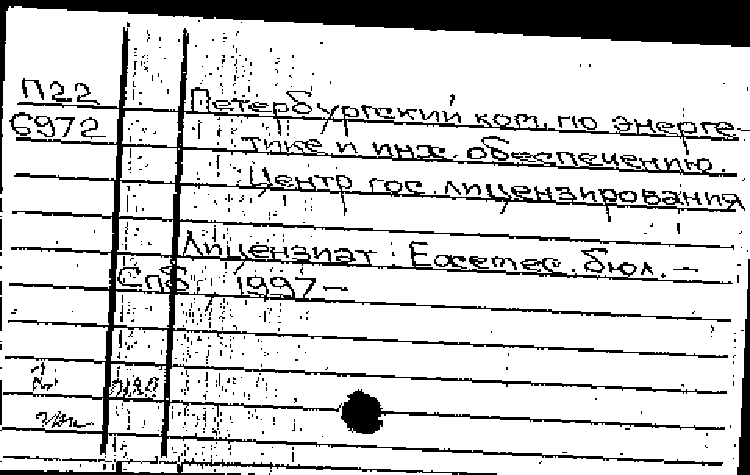 П22 Петербургский ком. по энерге-
6972 тике и инж. обеспечению.
Центр гос. лицензирования
Лицензиат : Ежемес. бюл. –
Спб, 1997–